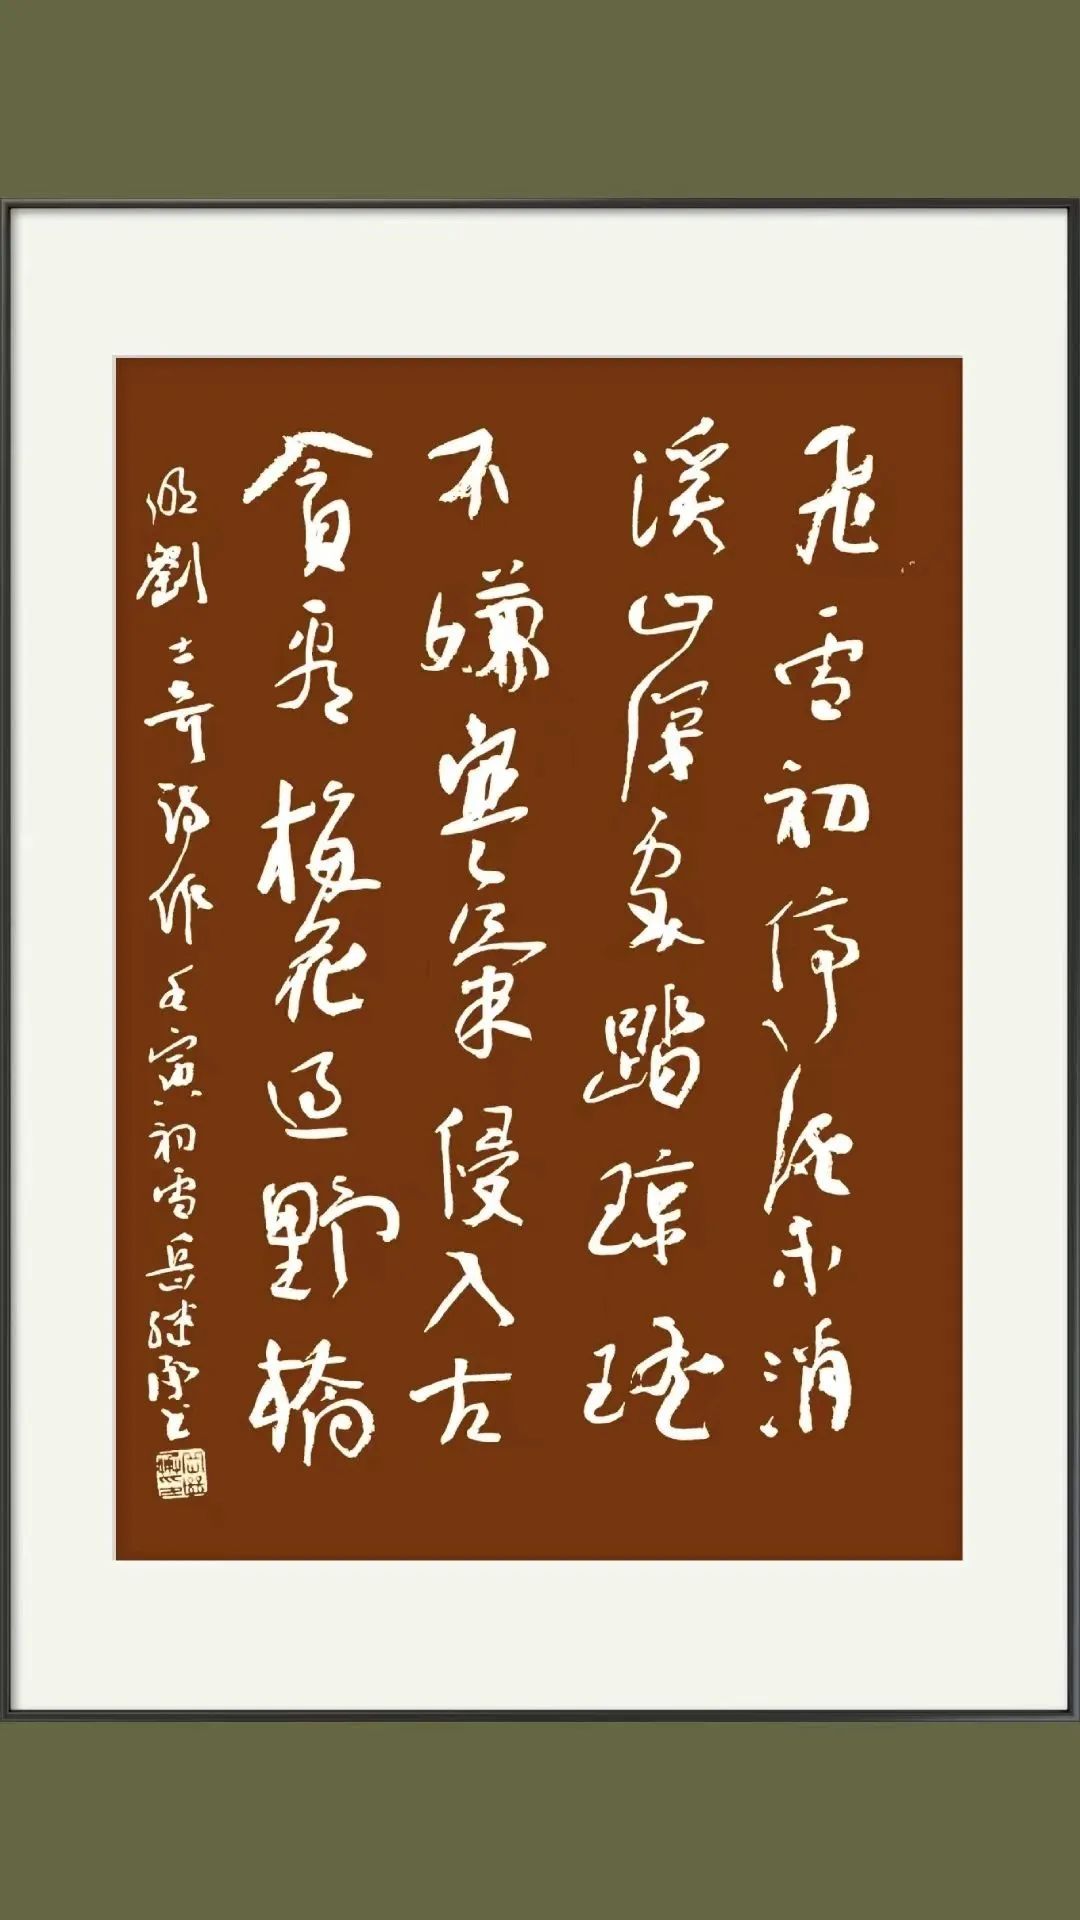 飛雪初停未消
溪山深處踏琼瑤
不嫌寒氣侵入古
貪看梅花過野橋
明劉士奇詩作壬寅初雪岳继承书